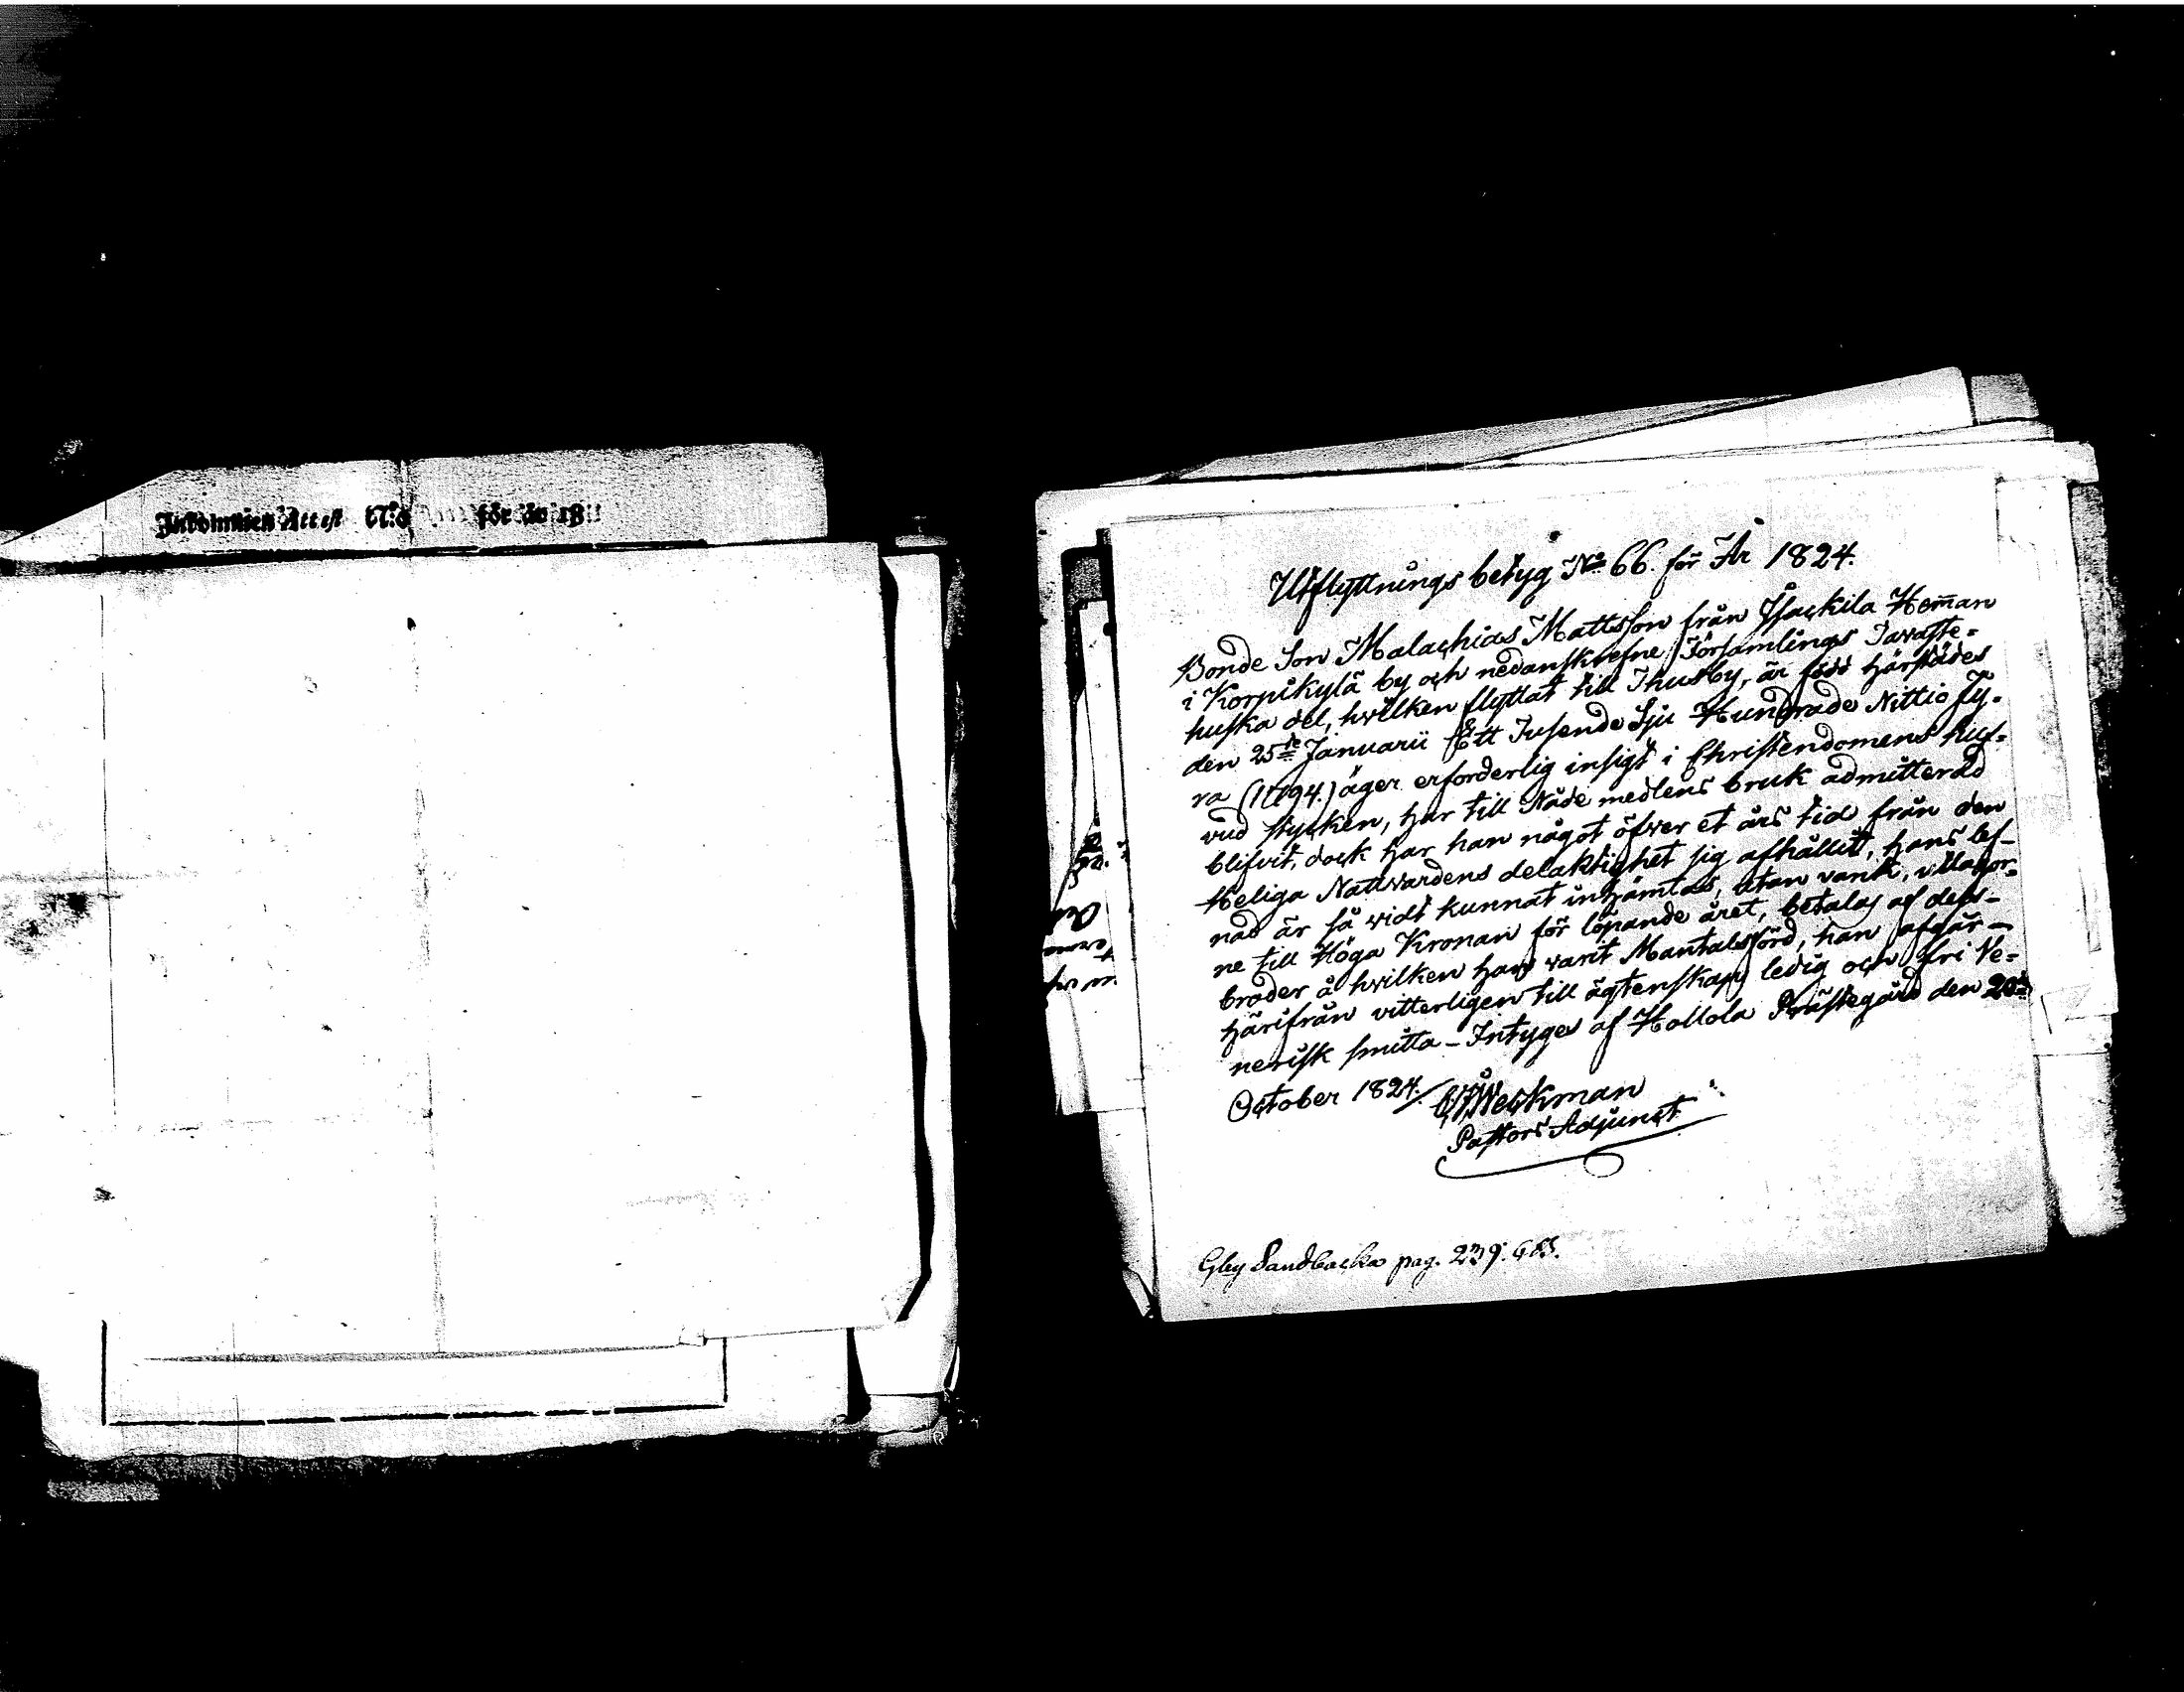 Inkommen Attest N:o för år 18
Utflyttnings betyg No 66. för År 1824.
Bonde Son Malachias Mattsson från Isackila Heman
i Korpikylä by och nedanskrefne Församlings Tavaste-
huska del, hwilken flyttat till Thusby, är född härstädes
den 25te Januarii Ett Tusende Sju Hundrade Nittio Fy-
ra (1794.) äger erforderlig insigt i Christendomens huf-
vud stycken, har till Nåde medlens bruk admitterad
blifvit, dock har han något öfwer et års tid från den
Heliga Nattwardens delaktighet sig afhållit, hans lef-
nad är så widt kunnat inhämtas, utan vank, utlagor-
ne till Höga Kronan för löpande året, betalas af dess
broder å hwilken han varit Mantalsförd, han afgår
härifrån vitterligen till ägtenskap ledig och fri Ve-
nerisk smitta - Intygas af Hollola Prästegård den 20de
October 1824. Weckman
Pastors Adjunct
Gby Sandbacka pag. 239.